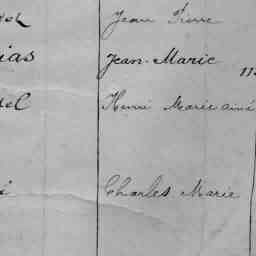 Jean Pierre
ias Jean-Marie
Henri Marie aimé
Charles Marie